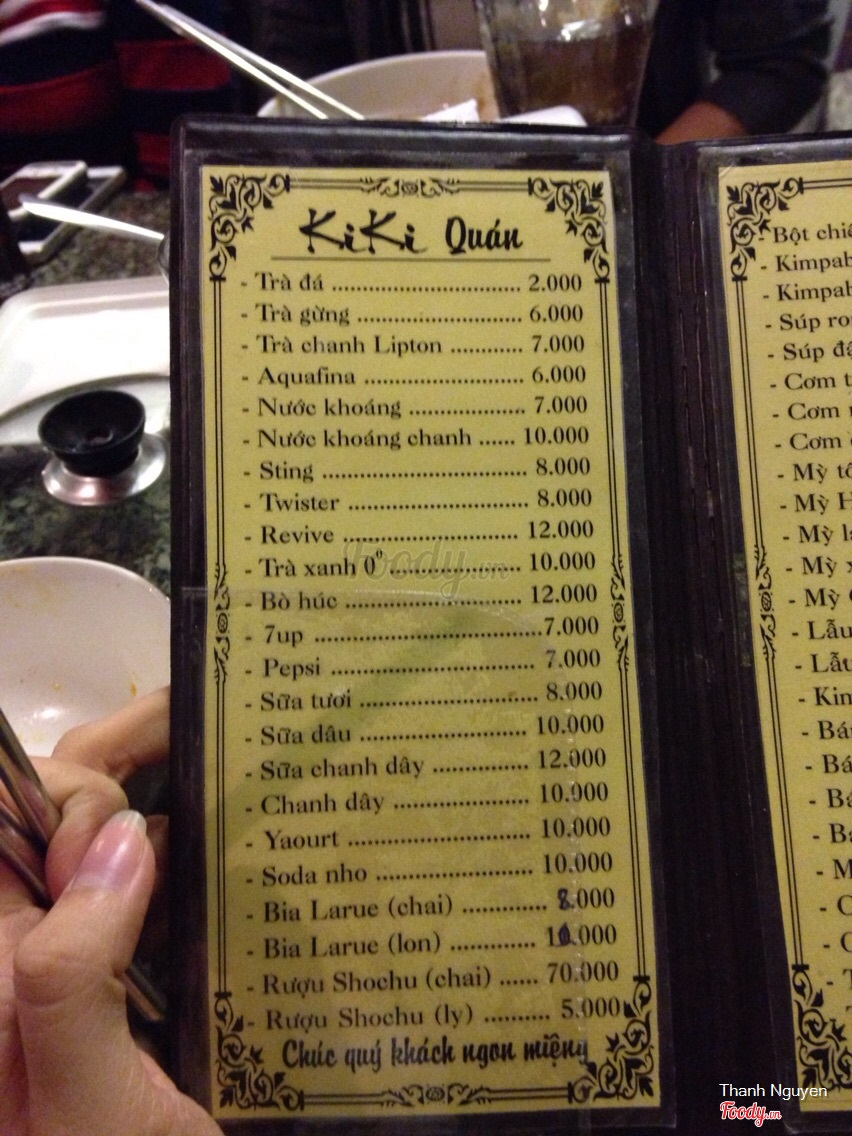 KiKi Quán
- Trà đá ........................................ 2.000
- Trà gừng .................................... 6.000
- Trà chanh Lipton ............ 7.000
- Aquafina .......................... 6.000
- Nước khoáng ................... 7.000
- Nước khoáng chanh ...... 10.000
- Sting ................................. 8.000
- Twister .............................. 8.000
- Revive ............................. 12.000
- Trà xanh 0⁰ ...................... 10.000
- Bò húc ............................. 12.000
- 7up ....................................7.000
- Pepsi ................................. 7.000
- Sữa tươi ............................ 8.000
- Sữa dâu ........................... 10.000
- Sữa chanh dây ................ 12.000
- Chanh dây ...................... 10.000
- Yaourt ............................. 10.000
- Soda nho ......................... 10.000
- Bia Larue (chai) .............. 8.000
- Bia Larue (lon) .............. .000
- Rượu Shochu (chai) ...... 70.000
- Rượu Shochu (ly) .......... 5.000
Chúc quý khách ngon miệng
- Bột
- Súp
- Súp
- Cơm
- Cơm
- Cơm
- Mỳ
- Mỳ
- Mỳ
- Mỳ
- Mỳ
- Lẩu
- Lẩu
Foody.vn
Thanh Nguyen
Foody.vn